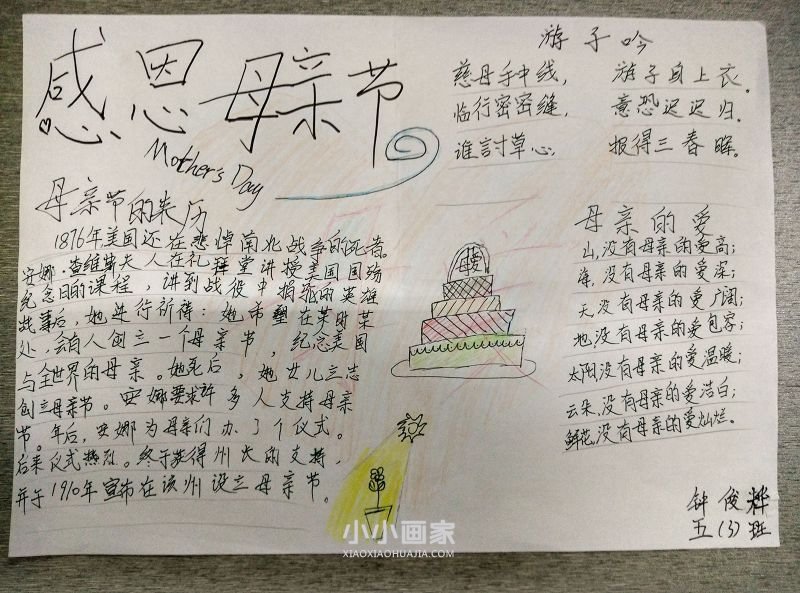 感恩母亲节
Mother's Day
母亲节的来历
1876年,美国还在悲悼南北战争的死者。
安娜·查维斯夫人在礼拜堂讲授美国国殇
纪念日的课程，讲到战役中捐躯的英雄
故事后，她进行祈祷：她希望在某时某
处，会自人创立一个母亲节，纪念美国
与全世界的母亲。她死后，她女儿立志
创立母亲节。安娜要求许多人支持母亲
节。年后，安娜为母亲们办了个仪式。
后来仪式热烈。终于获得州大的支持，
并于1910年宣布在该州设立母亲节。
游子吟
慈母手中线， 游子身上衣。
临行密密缝， 意恐迟迟归。
谁討草心， 报得三春晖。
母亲的爱
山，没有母亲的爱高；
海，没有母亲的爱深；
天，没有母亲的爱广阔；
地，没有母亲的爱包容；
太阳没有母亲的爱温暖；
云朵，没有母亲的爱洁白；
鲜花，没有母亲的爱灿烂。
钟俊烨
五(3)班
小小画家
XIAOXIAOHUAJIA.COM